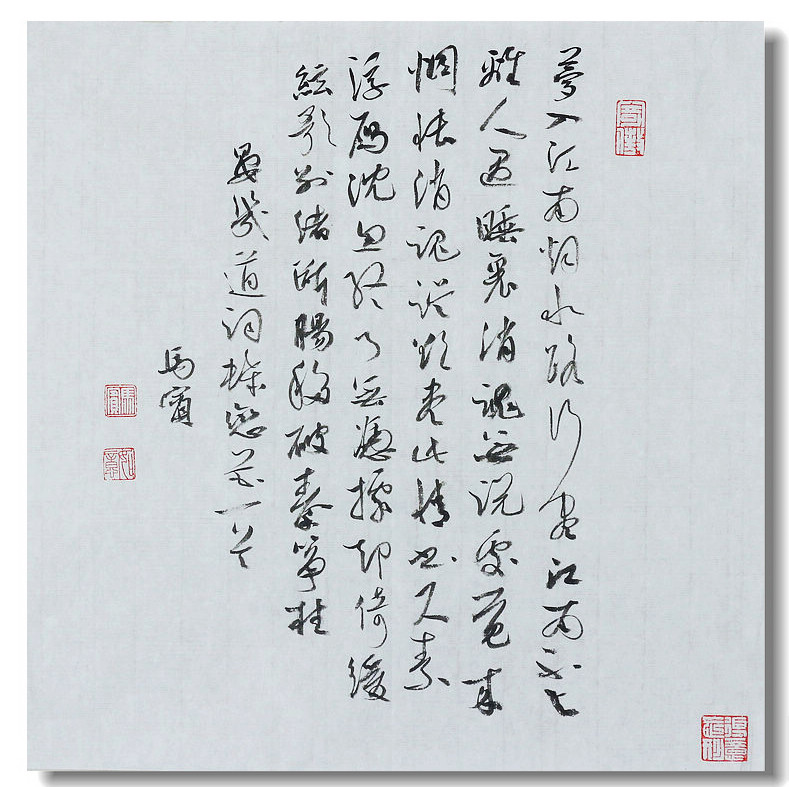 夢入江南烟水路行盡江南不与
離人遇睡裏消魂無说處覺来
惆悵消魂誤欲盡此情書尺素
浮雁沈魚終了無憑據却倚緩
絃歌别緒斷腸移破秦箏柱
晏幾道詞蝶戀花一首
馬賓
馬賓